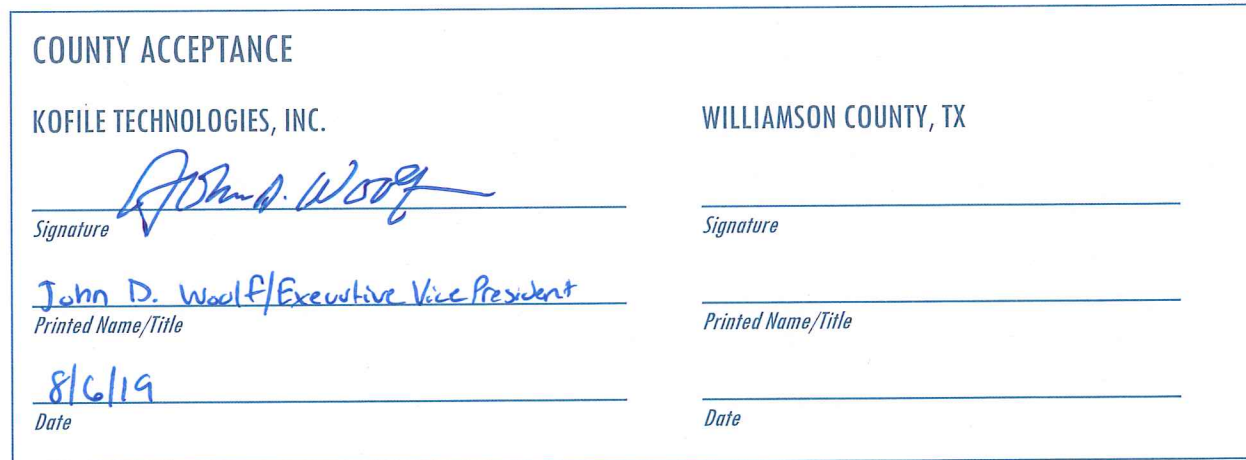 COUNTY ACCEPTANCE
KOFILE TECHNOLOGIES, INC.
John D. Woolf
Signature
John D. Woolf/Executive Vice President
Printed Name/Title
8/6/19
Date
WILLIAMSON COUNTY, TX
Signature
Printed Name/Title
Date